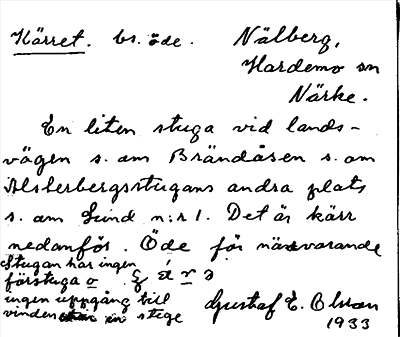 Kärret. bs. öde. Nälberg,
Hardemo sn
Närke.
En liten stuga vid lands-
vägen s. om Brändåsen s. om
Alsterbergsstugans andra plats
s. om Lund n:r 1. Det är kärr
nedanför. Öde för närvarande
Stugan har ingen
förstuga o
ingen uppgång till
vinden in stege
Gustaf E. Olsson
1933